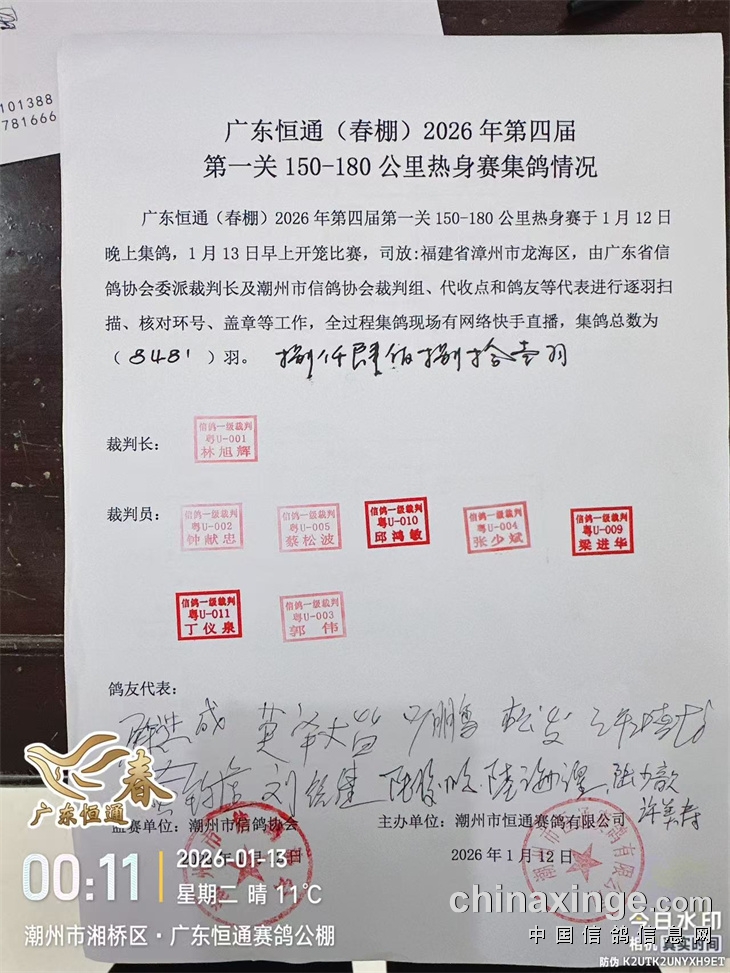 101388
781666
广东恒通（春棚）2026 年第四届
第一关 150-180 公里热身赛集鸽情况
广东恒通（春棚）2026 年第四届第一关 150-180 公里热身赛于 1 月 12 日
晚上集鸽，1 月 13 日早上开笼比赛，司放:福建省漳州市龙海区，由广东省信
鸽协会委派裁判长及潮州市信鸽协会裁判组、代收点和鸽友等代表进行逐羽扫
描、核对环号、盖章等工作，全过程集鸽现场有网络快手直播，集鸽总数为
（8481）羽。 捌仟肆佰捌拾壹羽
裁判长:
信鸽一级裁判
粤U-001
林旭辉
裁判员:
信鸽一级裁判
粤U-002
钟献忠
信鸽一级裁判
粤U-005
蔡松波
信鸽一级裁判
粤U-010
邱鸿敏
信鸽一级裁判
粤U-004
张少斌
信鸽一级裁判
粤U-009
梁进华
信鸽一级裁判
粤U-011
丁仪泉
信鸽一级裁判
粤U-003
郭伟
鸽友代表:
许美寿
监赛单位: 潮州市信鸽协会
主办单位: 潮州市恒通赛鸽有限公司
2026 年 1 月 12 日
春
广东恒通
00:11
2026-01-13
星期二 晴 11℃
潮州市湘桥区·广东恒通赛鸽公棚
chinaxinge.com
中国信鸽信息网
今日水印
相机 真实时间
防伪 K2UTK2UNYXH9ET